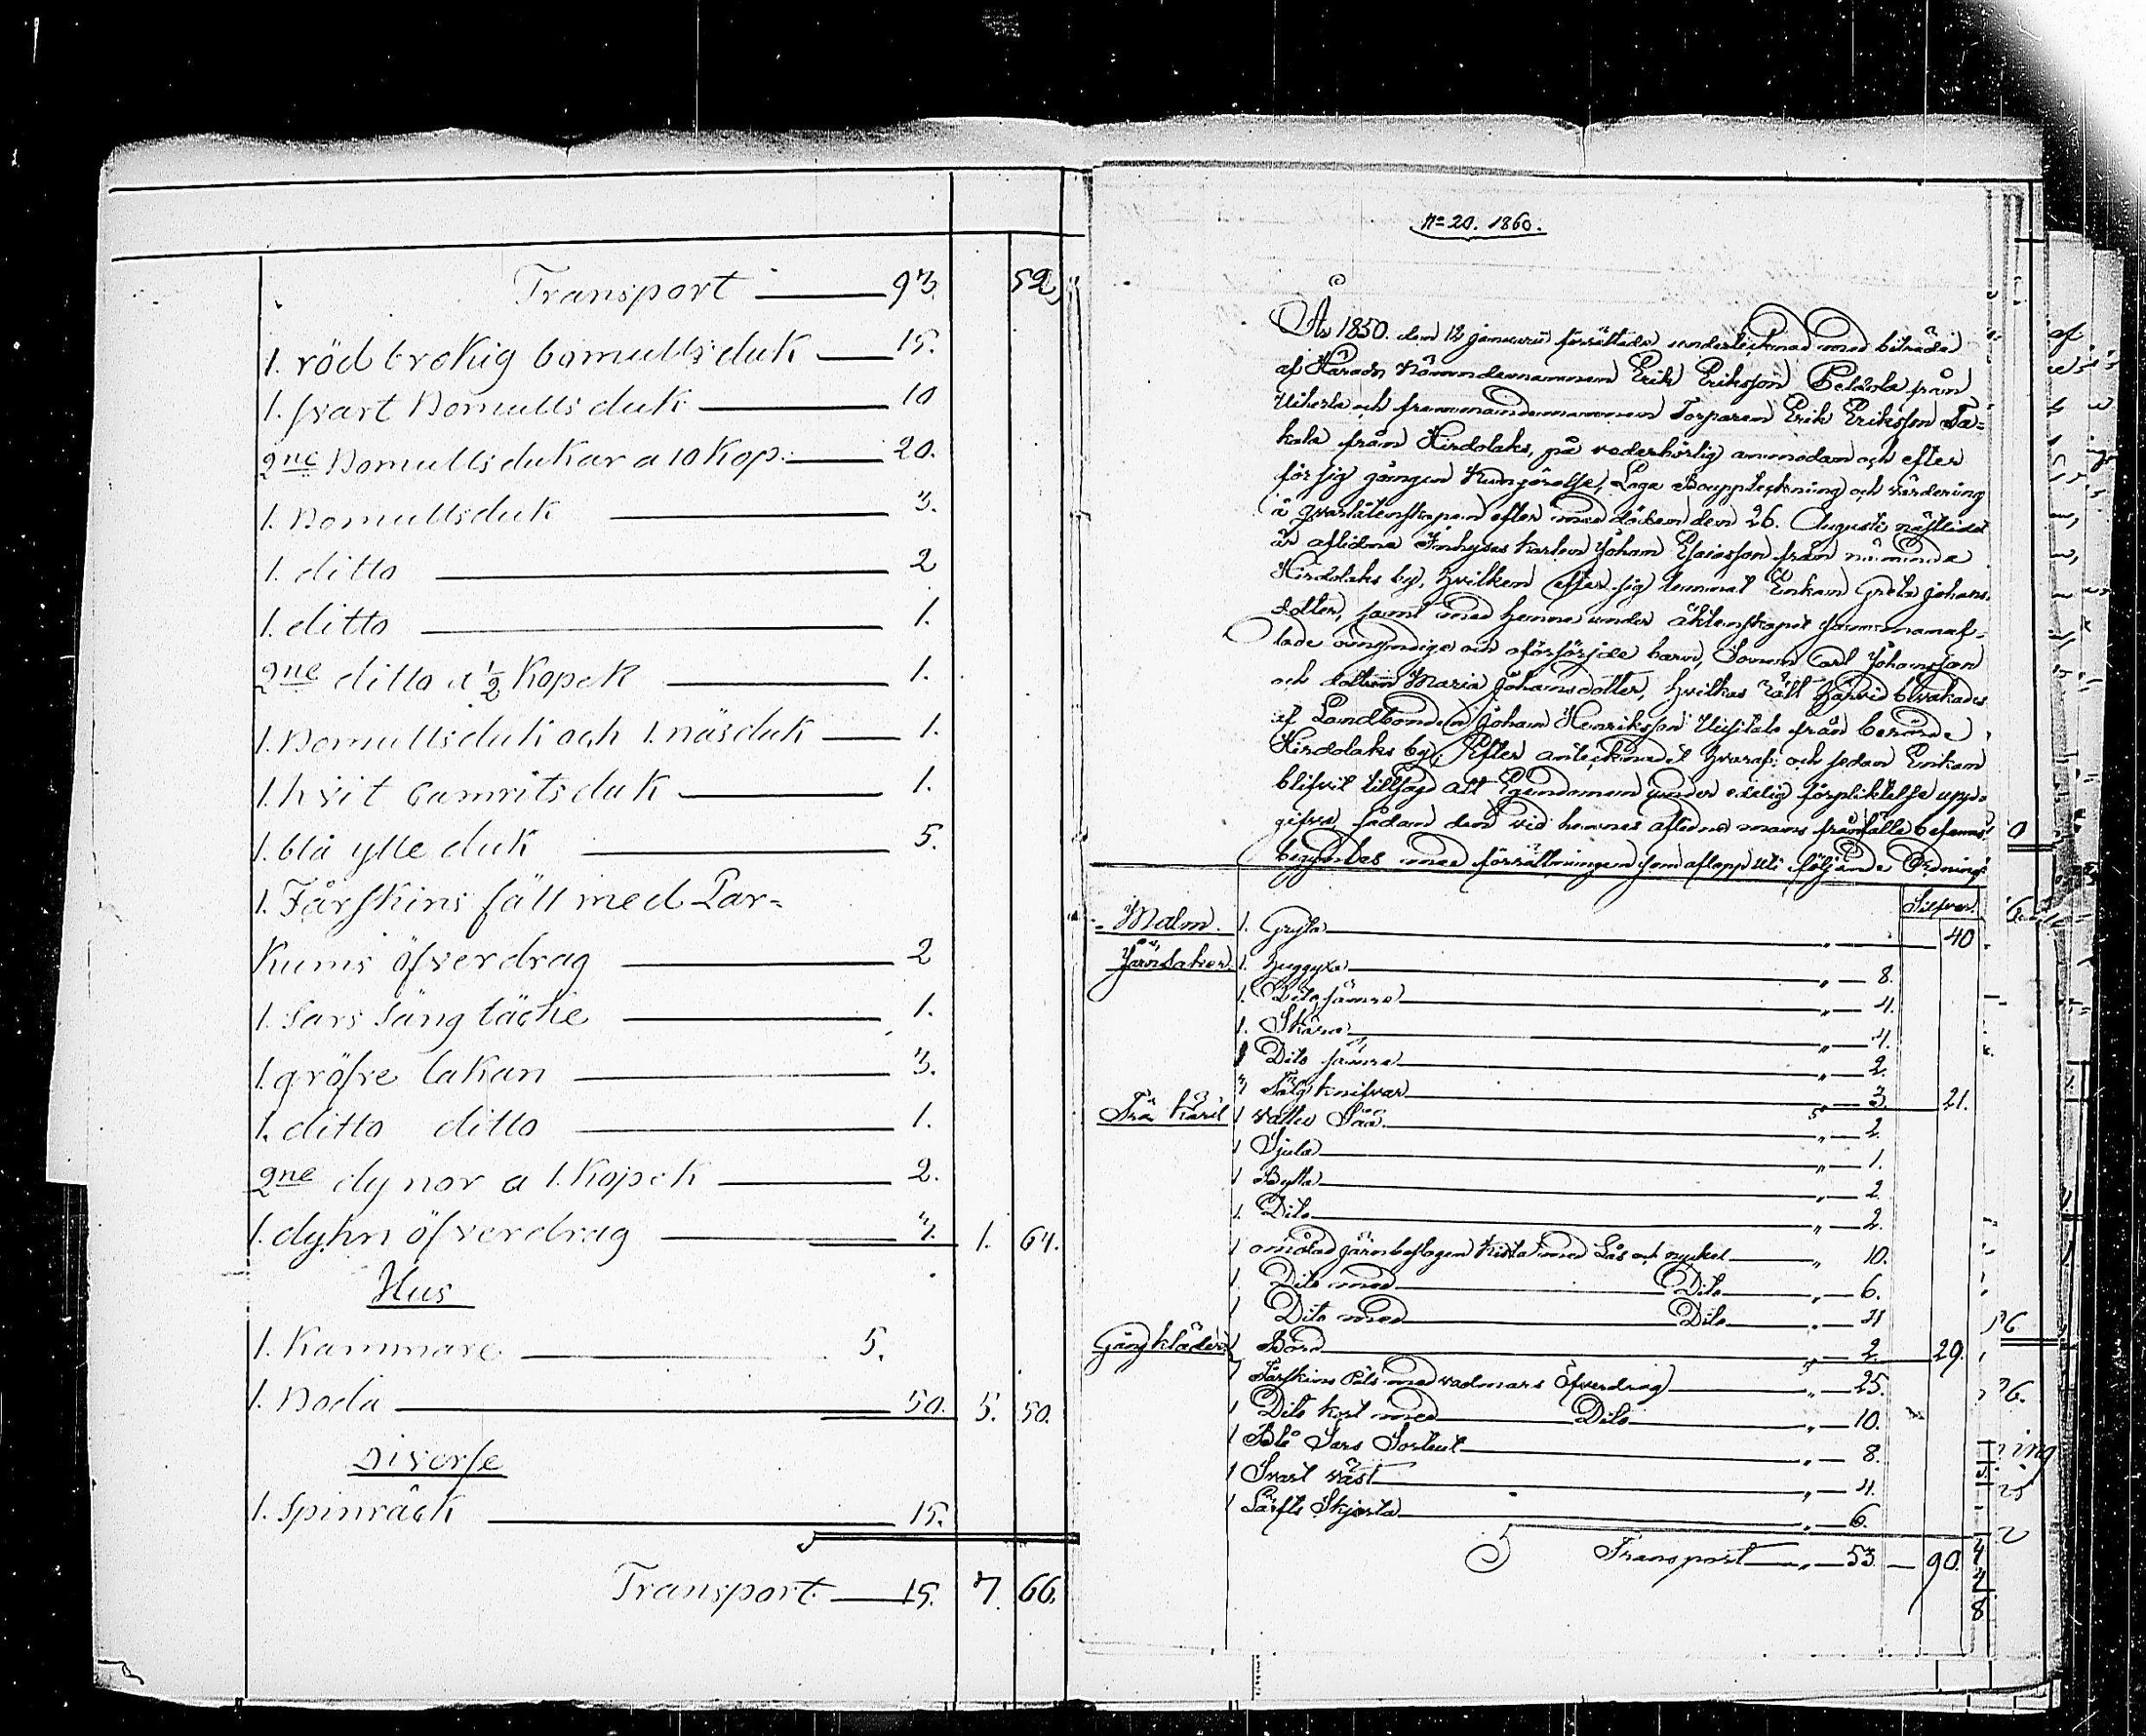 Transport 93. 52
1. röd brokig bomulls duk 15.
1. svart Bomulls duk 10
2ne Bomulls dukar a 10 Kop. 20.
1. Bomulls duk 3.
1. ditto 2
1. ditto 1.
2ne ditto a ½ Kopek 1.
1. Bomulls duk och 1. näsduk 1.
1. hvit Camrits duk 1.
1. blå ylle duk 5.
1. Fårskins fäll med Par=
Kums öfverdrag 2
1. Sars Säng täcke 1.
1. gröfre lakan 3.
1. ditto ditto 1.
2ne dynor a 1. Kopek 2.
1. dyhn öfverdrag 3. 1. 64.
Hus
1. Kammare 5.
1. Boda 50. 5. 50.
Diverse
1. Spinråck 15.
Transport 15. 7. 66.
No 20. 1860.
År 1850. den 12 januarii förrättade undertecknad med biträde
af Härads Nämndemannen Erik Eriksson Peldola från
och frammandemannen Torparen Erik Eriksson Ta=
kala från Hirdolaks, på vederhörlig anmodan och efter
för sig gången Kungörelse, Laga Bouppteckning och värdering
å qvarlåtenskapen efter med döden den 26. Augusti nästlidet
år aflidne Inhyses karlen Johan Esaiesson från nämnde
Hirdolaks by, hvilken efter sig lemnat Enkan Greta Johans
dotter, samt med henne under äktenskapet sammanaf=
lade omyndige och oförsörjde barn, Sonen Carl Johansson
och dottren Maria Johansdotter, hvilkas rätt härvid bevakades
af Landbonden Johan Henriksson Uusitalo från berörde
Hirdolaks by; Efter antecknadet hvaraf och sedan Enkan
blifvit tillsagd att Egendomen under edelig förpliktelse upp=
gifva, sådan den vid hennes aflidne mans frånfälle befanns
begyntes med förrättningen som aflopp uti följande Ordning:
Silfver
Malm. 1. Gryta 40
Järnsaker. 1. huggyxa 8.
1. Dito sämre 4.
1. Skära 4.
1 Dito sämre 2.
3 Tälg knifvar 3. 21.
Trä Käril 1 Vatten Såå 2.
1 Stjula 1.
1 Bytta 2.
1. Dito 2.
1 omålad järnbeslagen Kista med Lås och nyckel 10.
1. Dito med Dito 6.
1 Dito med Dito 4
1 Bord 2. 29.
Gångkläder 1 Fårskins Päls med vadmars Öfverdrag 25.
1 Dito kort med Dito 10.
1 Blå Sars Sortut 8.
1 Svart väst 4.
1 Lärfts Skjorta 6.
Transport 53. 90.